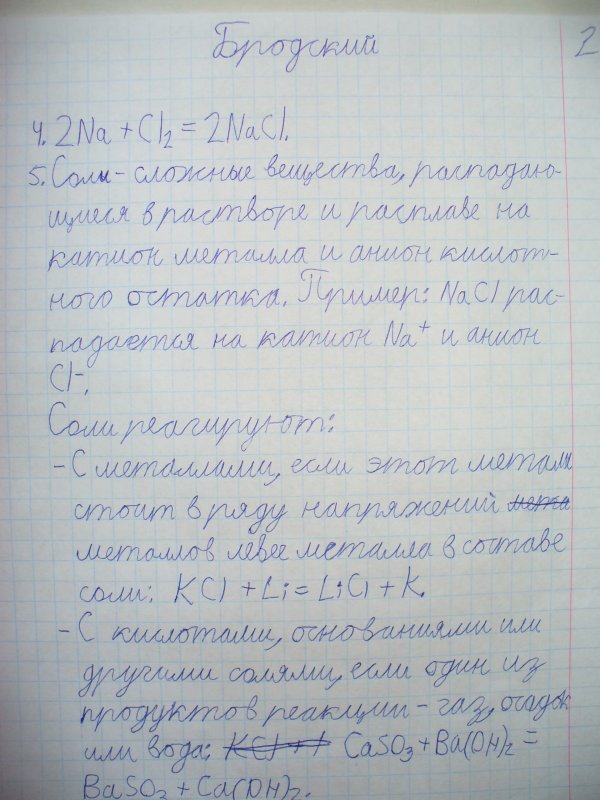 Бродский
2
4. 2Na + Cl₂ = 2NaCl.
5. Соли - сложные вещества, распадаю-
щиеся в растворе и расплаве на
катион металла и анион кислот-
ного остатка. Пример: NaCl рас-
падается на катион Na⁺ и анион
Cl⁻.
Соли реагируют:
- С металлами, если этот металл
стоит в ряду напряжений
металлов левее металла в составе
соли: KCl + Li = LiCl + K.
- С кислотами, основаниями или
другими солями, если один из
продуктов реакции - газ, осадок
или вода: CaSO₃ + Ba(OH)₂ =
BaSO₃ + Ca(OH)₂.